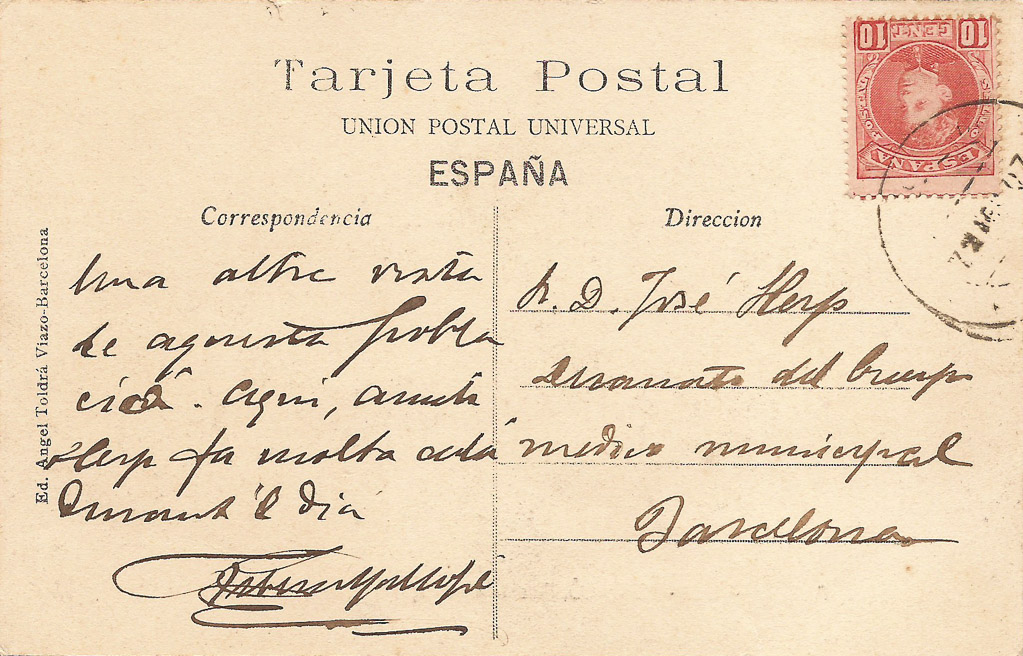 Tarjeta Postal
UNION POSTAL UNIVERSAL
ESPAÑA
Correspondencia
Una altre vista
de aquesta pobla
ció. Aquí, amich
Herp fa molta
Durant 'l dia
Direccion
Sr. D. José Herp
Decanato del Cuerpo
médico municipal
Barcelona
Ed. Angel Toldrá Viazo-Barcelona
10 CENT 10
ESPAÑA